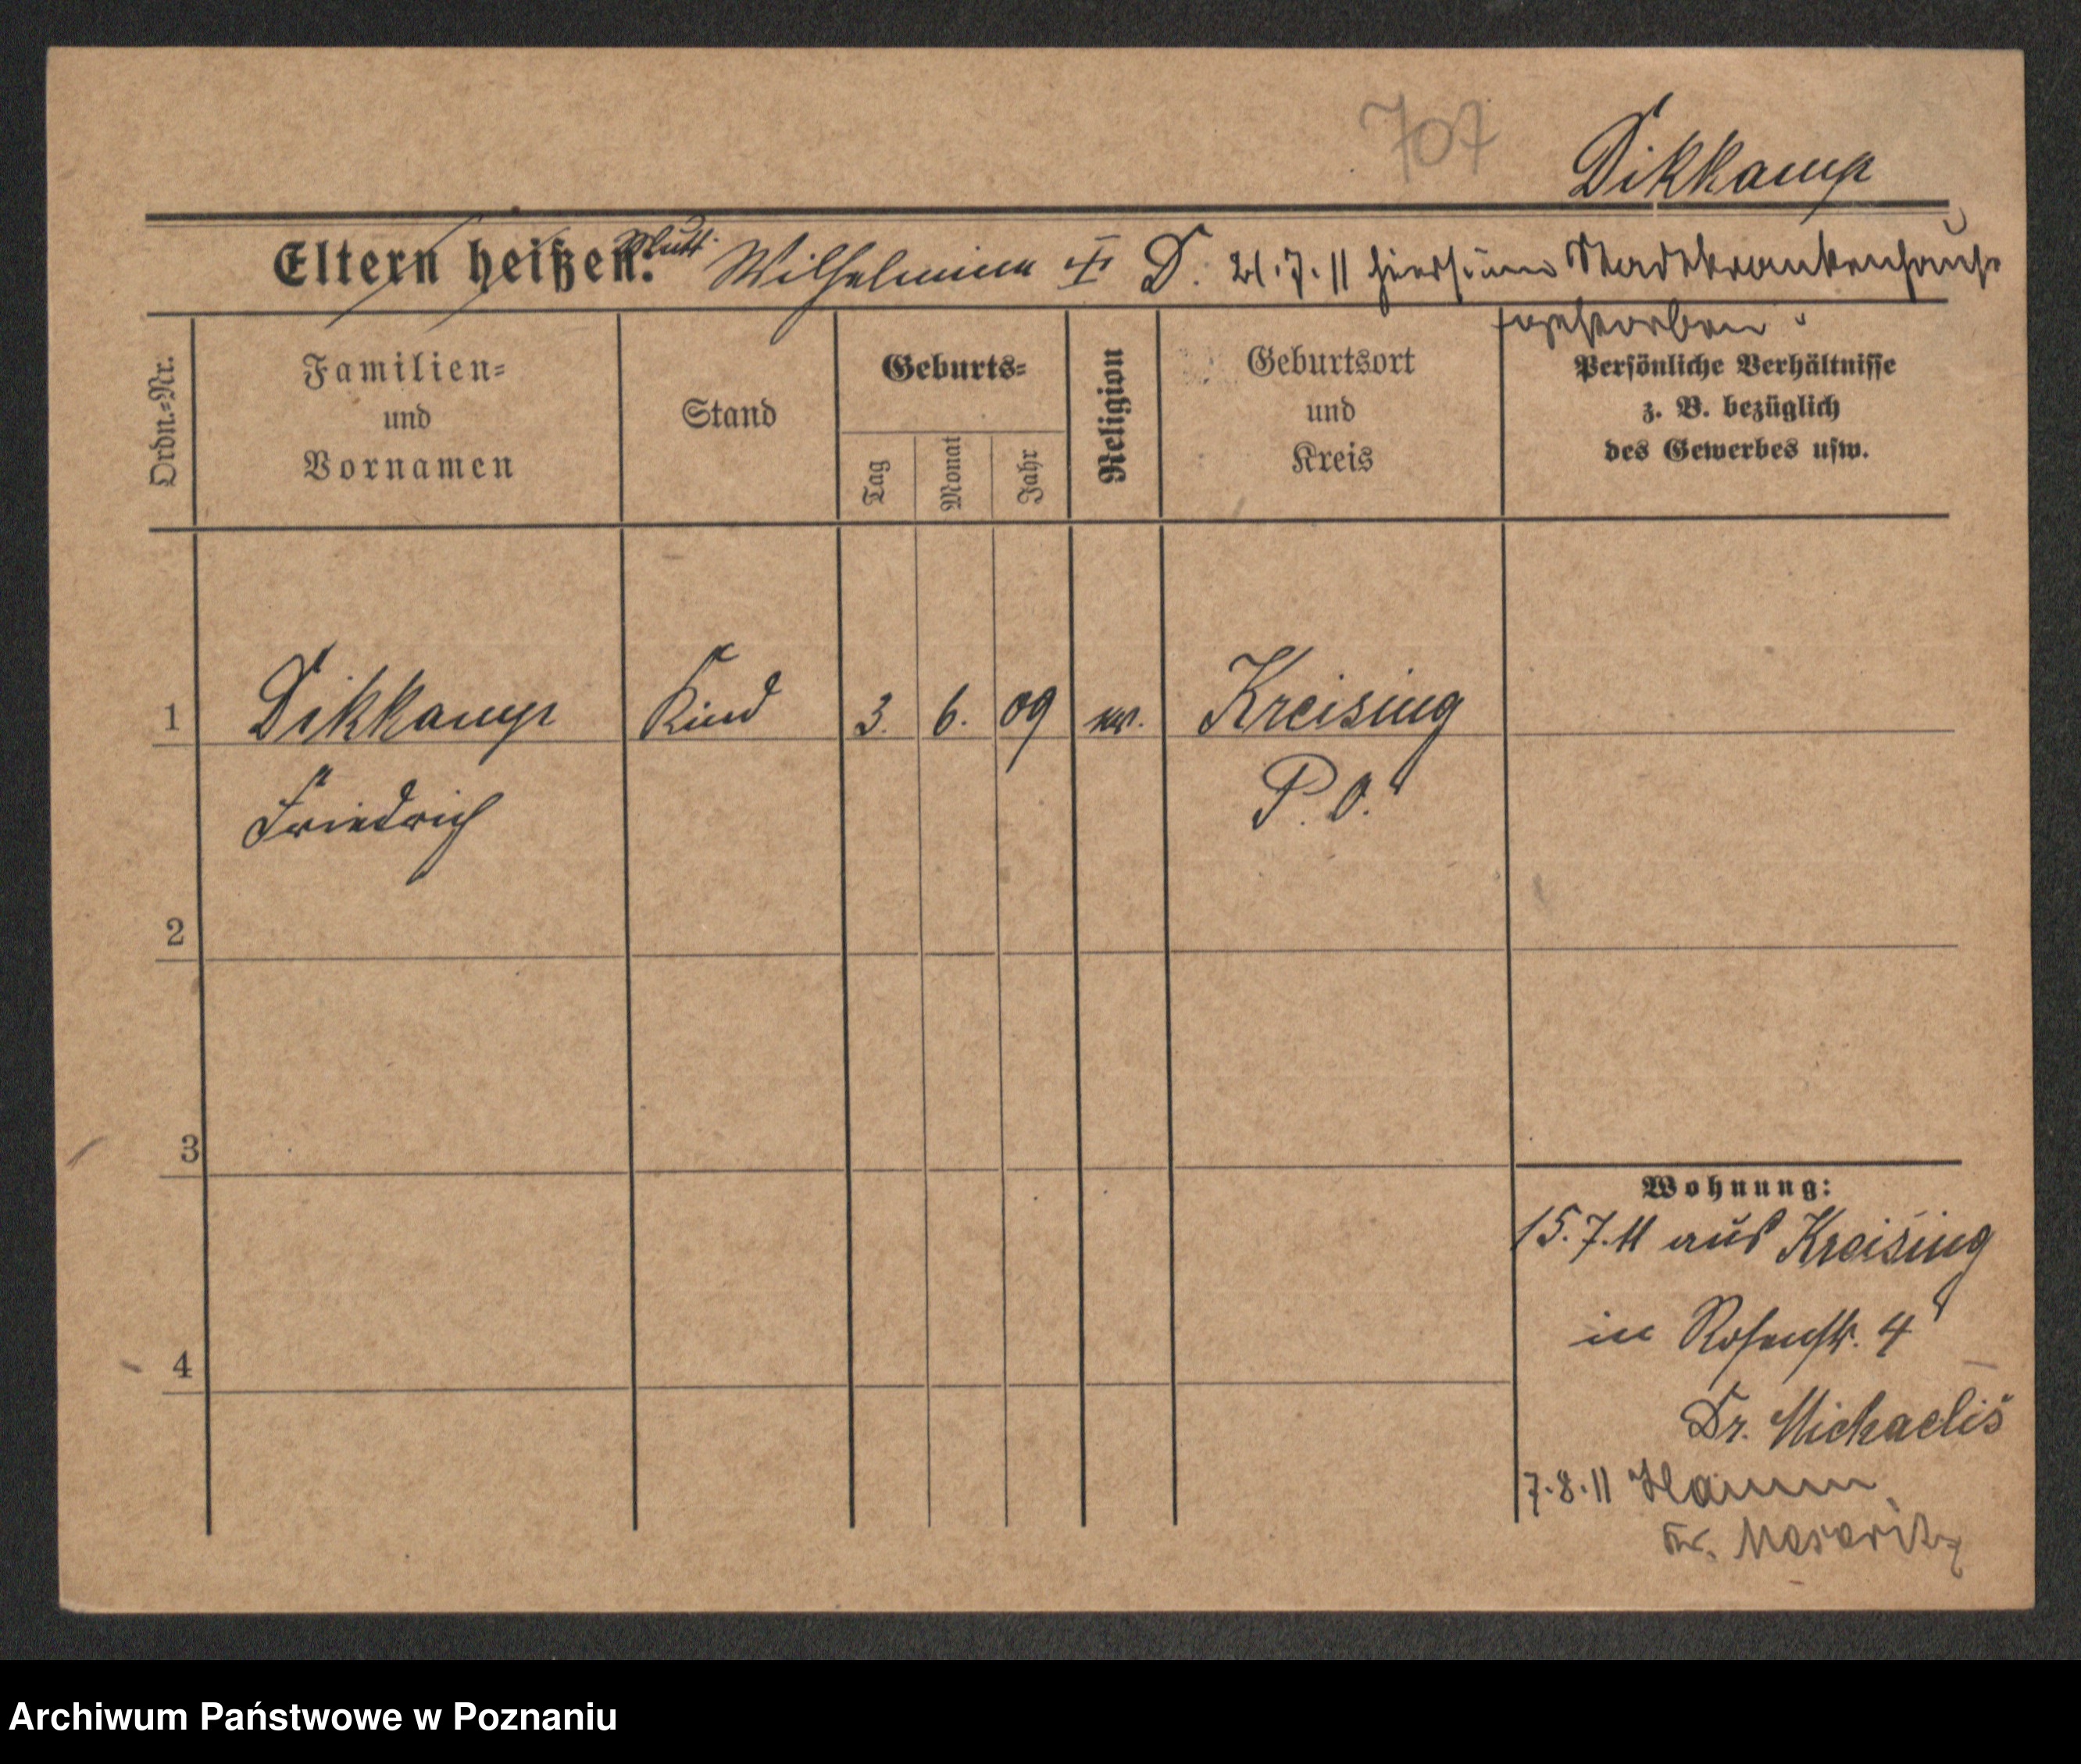 707
Dikkamp
Eltern heißen: Mutt. Wilhelmine D. 21.7.11 hiers. im Stadtkrankenhause
gestorben.
Ordn.=Nr.
Familien=
und
Vornamen
Stand
Geburts=
Tag
Monat
Jahr
Religion
Geburtsort
und
Kreis
Persönliche Verhältnisse
z. B. bezüglich
des Gewerbes usw.
1 Dikkamp Kind 3. 6. 09 ev. Kreising
Friedrich P. O.
2
3
4
Wohnung:
15.7.11 aus Kreising
in Rosenstr. 4
Dr. Michaelis
7.8.11
Kr. Meseritz
Archiwum Państwowe w Poznaniu